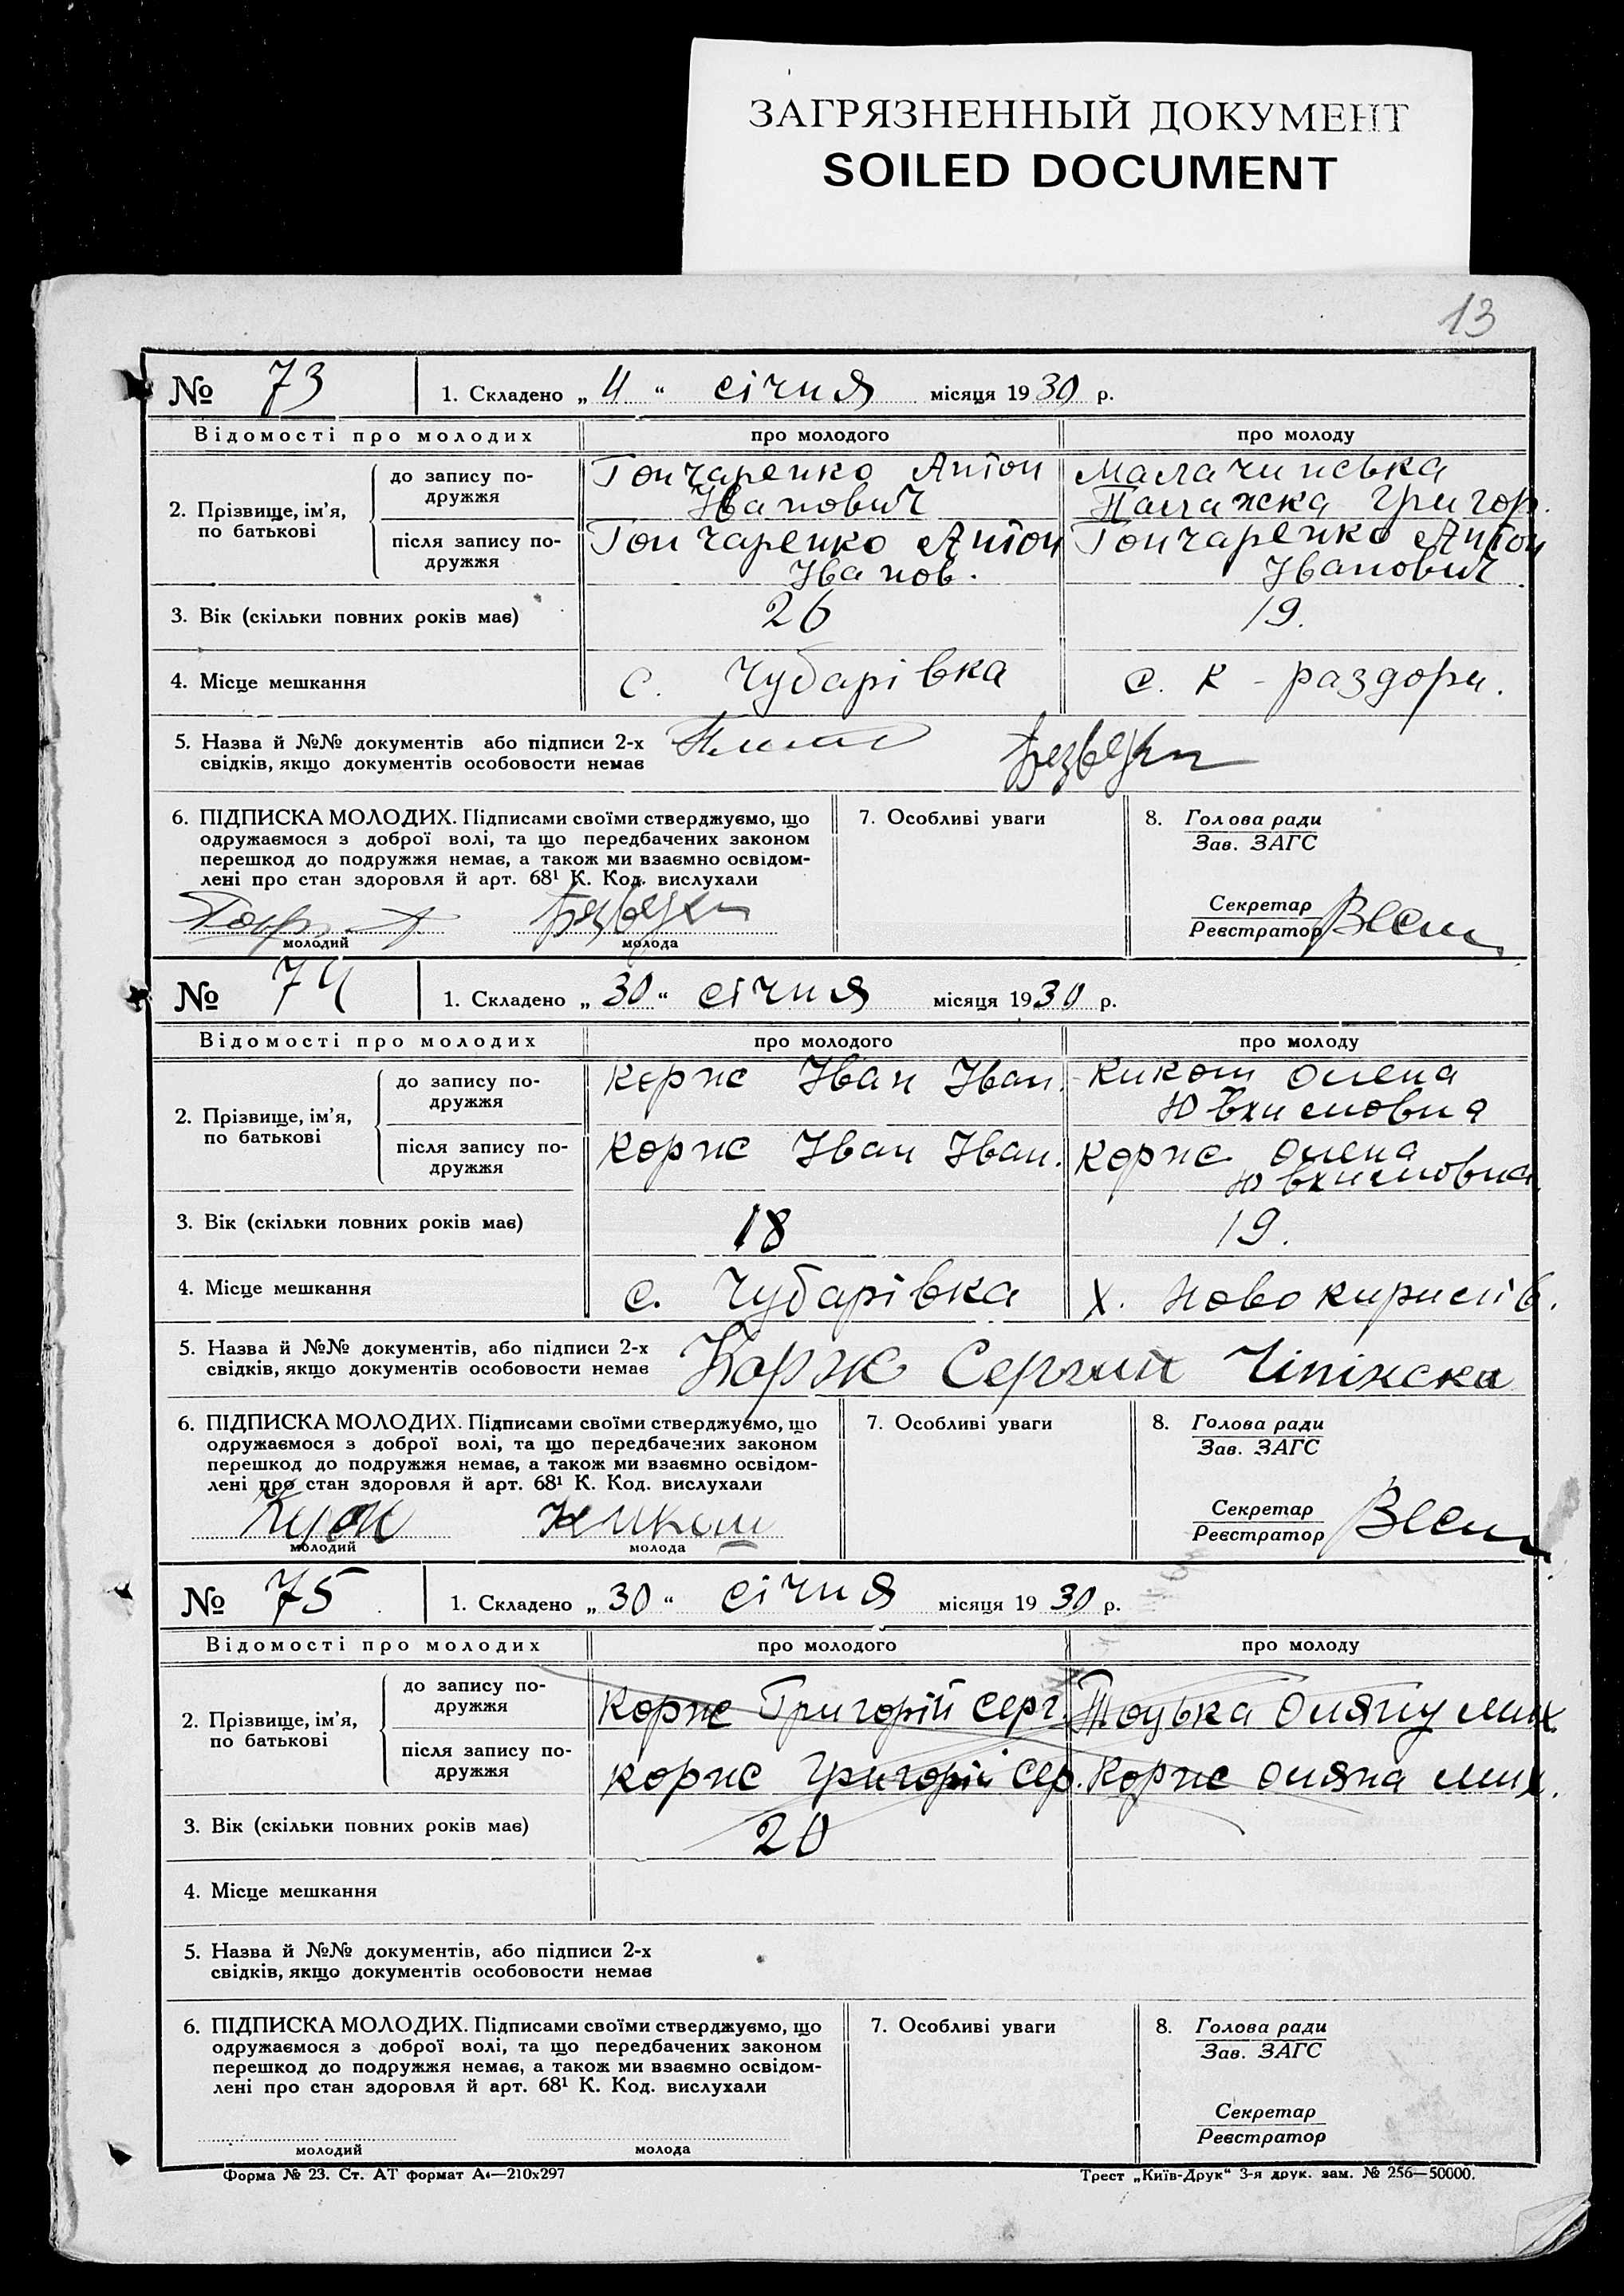 ЗАГРЯЗНЕННЫЙ ДОКУМЕНТ
SOILED DOCUMENT
13
№ 73 1. Складено „ 4 “ січня місяця 1930 р.
Відомості про молодих про молодого про молоду
2. Прізвище, ім’я, по батькові
до запису подружжя
Гончаренко Антон
Іванович
Малачинська
Палажка Григор.
після запису подружжя
Гончаренко Антон
Іванов.
Гончаренко Антон
Іванович
3. Вік (скільки повних років має) 26 19.
4. Місце мешкання с. Чубарівка с. К - раздори.
5. Назва й №№ документів або підписи 2-х
свідків, якщо документів особовости немає
6. ПІДПИСКА МОЛОДИХ. Підписами своїми стверджуємо, що
одружаємося з доброї волі, та що передбачених законом
перешкод до подружжя немає, а також ми взаємно освідом-
лені про стан здоровля й арт. 68¹ К. Код. вислухали
молодий молода
7. Особливі уваги
8. Голова ради
Зав. ЗАГС
Секретар
Реєстратор
№ 74 1. Складено „ 30 “ січня місяця 1930 р.
Відомості про молодих про молодого про молоду
2. Прізвище, ім’я,
по батькові
до запису по-
дружжя
Корж Іван Іван.
Кикот Олена
Ювхимовна
після запису по-
дружжя
Корж Іван Іван.
Корж Олена
Ювхимовна
3. Вік (скільки повних років має) 18 19.
4. Місце мешкання с. Чубарівка х. Ново
5. Назва й №№ документів, або підписи 2-х
свідків, якщо документів особовости немає
Корж Сергий
6. ПІДПИСКА МОЛОДИХ. Підписами своїми стверджуємо, що
одружаємося з доброї волі, та що передбачених законом
перешкод до подружжя немає, а також ми взаємно освідом-
лені про стан здоровля й арт. 68¹ К. Код. вислухали
молодий молода
7. Особливі уваги
8. Голова ради
Зав. ЗАГС
Секретар
Реєстратор
№ 75 1. Складено „ 30 “ січня місяця 1930 р.
Відомості про молодих про молодого про молоду
2. Прізвище, ім’я,
по батькові
до запису по-
дружжя
Корж Григорій Серг. Мих.
після запису по-
дружжя
Корж Григорій Сер. Корж Оляна Мих.
3. Вік (скільки повних років має) 20
4. Місце мешкання
5. Назва й №№ документів, або підписи 2-х
свідків, якщо документів особовости немає
6. ПІДПИСКА МОЛОДИХ. Підписами своїми стверджуємо, що
одружаємося з доброї волі, та що передбачених законом
перешкод до подружжя немає, а також ми взаємно освідом-
лені про стан здоровля й арт. 68¹ К. Код. вислухали
молодий молода
7. Особливі уваги
8. Голова ради
Зав. ЗАГС
Секретар
Реєстратор
Форма № 23. Ст. АТ формат А4—210х297
Трест „Київ-Друк“ 3-я друк. зам. № 256—50000.